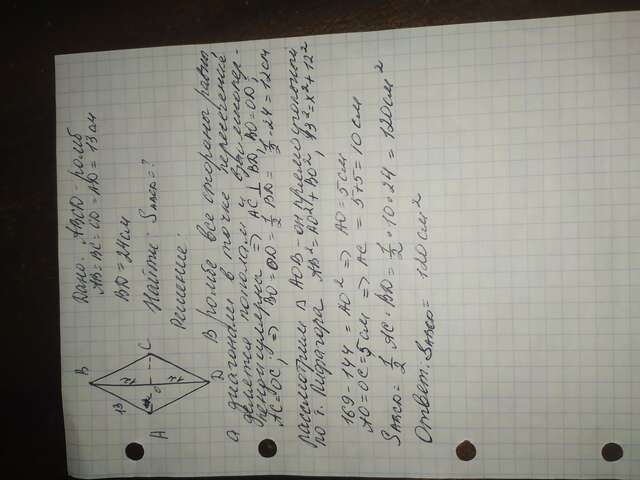 Дано: ABCD - ромб
AB = BC = CD = AD = 13 см
BD = 24 см
Найти: SABCD = ?
Решение:
B
13
12
x
O
12
A
C
D
В ромбе все стороны равны,
а диагонали в точке пересечения
делятся пополам и взаимопер-
пендикулярны => AC ⊥ BD, BO = OD,
AC = OC, => BO = OD = 1/2 BD = 1/2 · 24 = 12 см
рассмотрим △ AOB - он прямоугольный
по т. Пифагора AB² = AO² + BO², 13² = x² + 12²
169 - 144 = AO² => AO = 5 см
AO = OC = 5 см => AC = 5 + 5 = 10 см
SABCD = 1/2 AC · BD = 1/2 · 10 · 24 = 120 см²
Ответ: SABCD = 120 см²